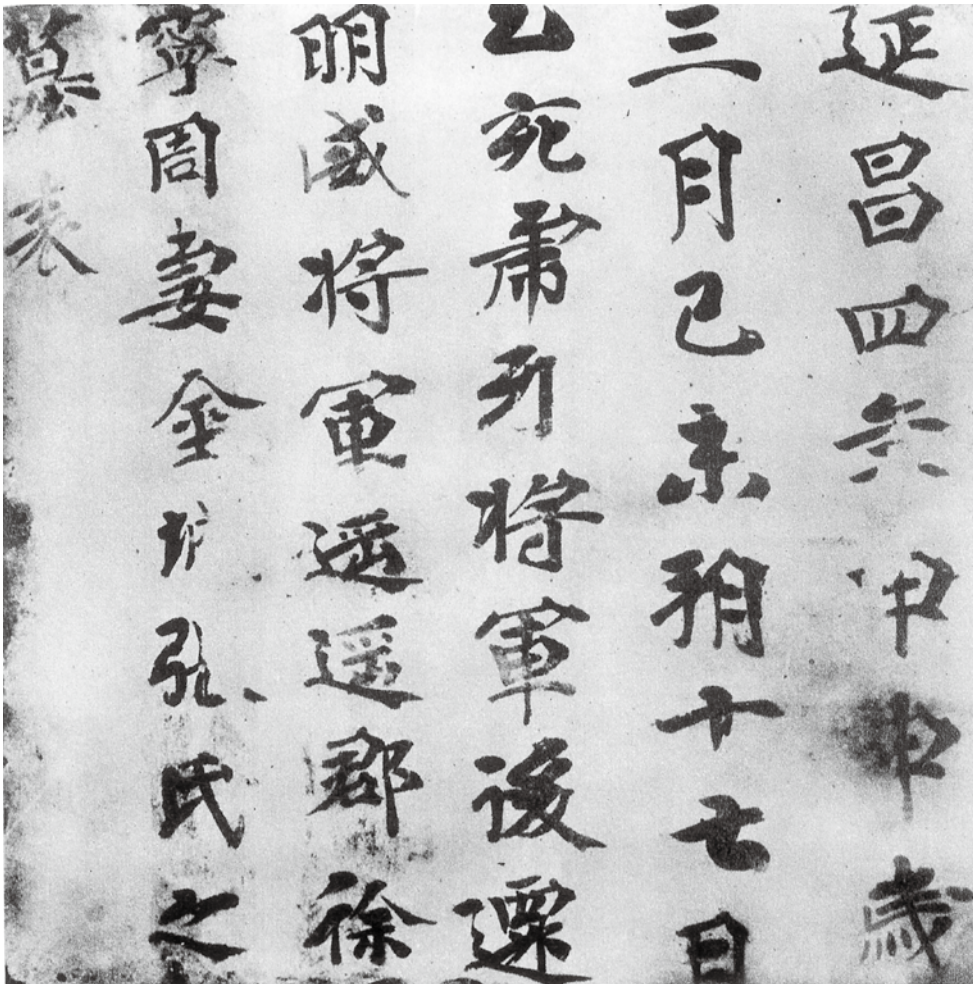 延昌四年甲申歲
三月己未朔十七日
乙亥虎牙将軍後遷
明威将軍遥遥郡徐
寧周妻金城張氏之
墓表